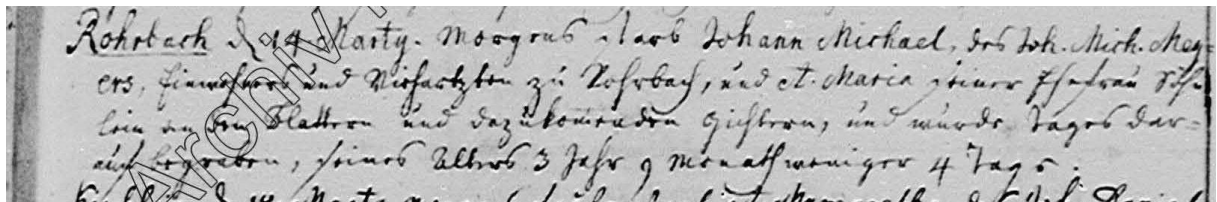 Rohrbach d 14 Marty. Morgens starb Johann Michael, des Joh. Mich. Mey=
ers, Einwohners und Viehartzten zu Rohrbach, und A. Maria seiner Ehefrau Söhn
lein an den Blattern und dazu komenden Gichtern, und wurde Tages dar=
auf begraben, seines Alters 3 Jahr 9 Monath weniger 4 Tage.
d 14 Marty
Archiv